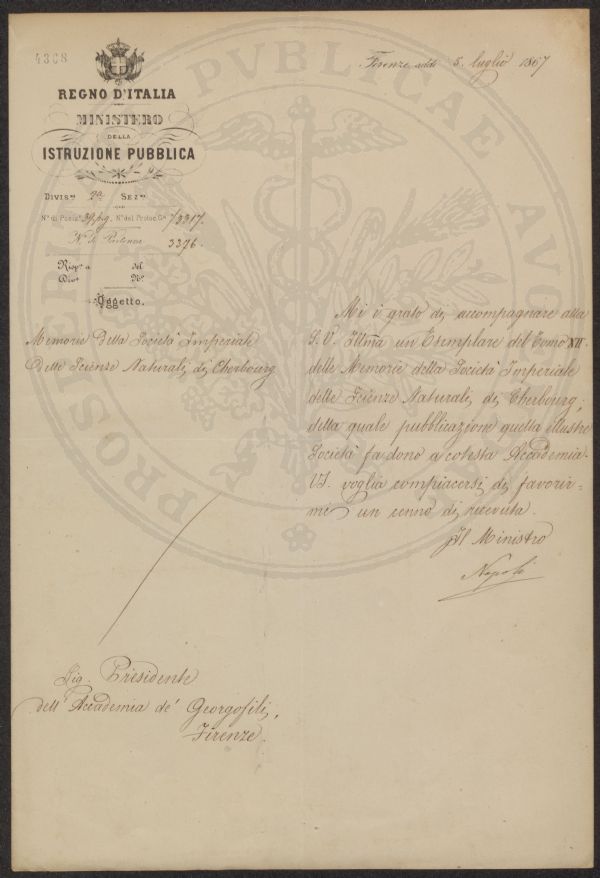 4368
Firenze, addì 5. luglio 1867
REGNO D'ITALIA
MINISTERO
DELLA
ISTRUZIONE PUBBLICA
Divisne 2a Sezne
No. di Posizne No. del Protoc. Gle 3317.
N. di Partenza 3376.
Rispta a del
Divne No.
Oggetto.
Memorie Della Società Imperiale
Delle Scienze Naturali di Cherbourg
Mi è grato di accompagnare alla
S. V. Illma un Esemplare del Tomo XII
delle Memorie della Società Imperiale
delle Scienze Naturali di Cherbourg,
della quale pubblicazione quella illustre
Società fa dono a cotesta Accademia.
V.S. voglia compiacersi di favorir=
mi un cenno di ricevuta.
Il Ministro
Sig. Presidente
dell'Accademia de' Georgofili,
Firenze.
PROSPERITATI PVBLICAE AVGENDAE